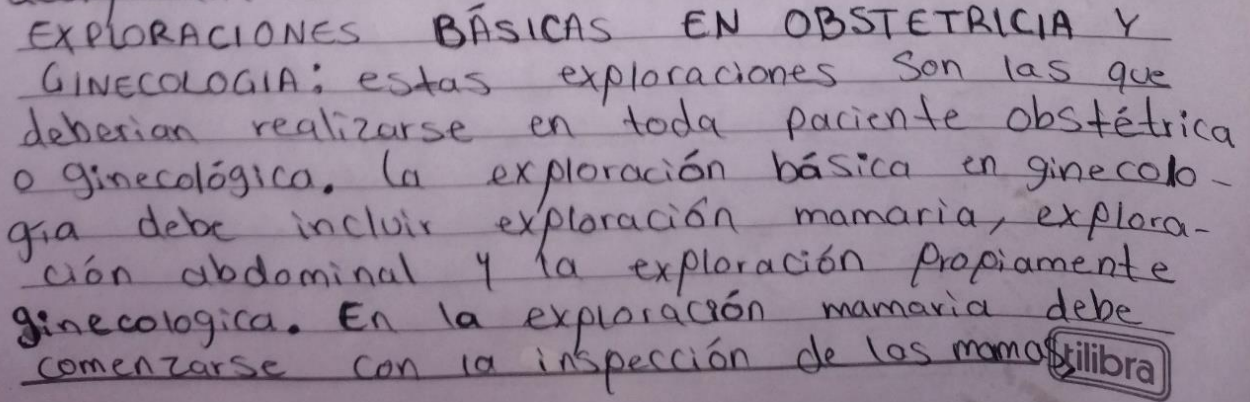 EXPLORACIONES BÁSICAS EN OBSTETRICIA Y
GINECOLOGIA: estas exploraciones son las que
deberian realizarse en toda paciente obstétrica
o ginecológica. La exploración básica en ginecolo-
gía debe incluir exploración mamaria, explora-
ción abdominal y la exploración propiamente
ginecologica. En la exploración mamaria debe
comenzarse con la inspección de las mamas
tilibra